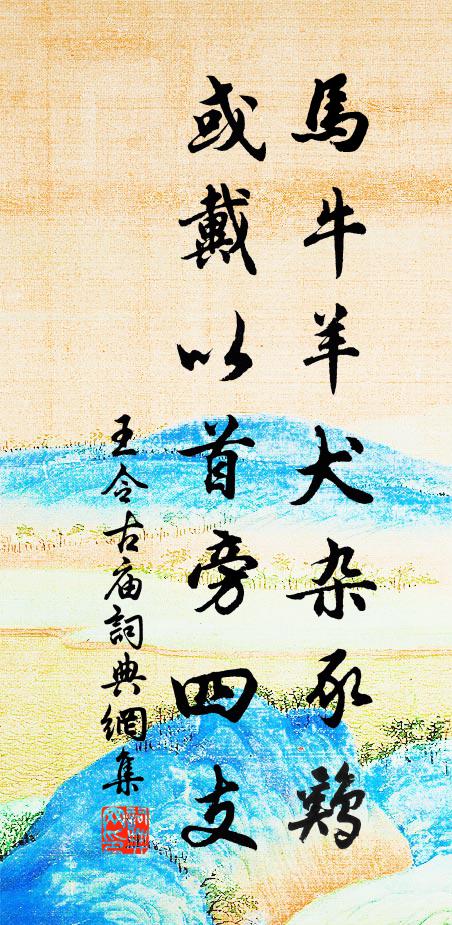 馬牛羊犬杂豕鷄
或戴以首旁四支
王令古庙詞典網集